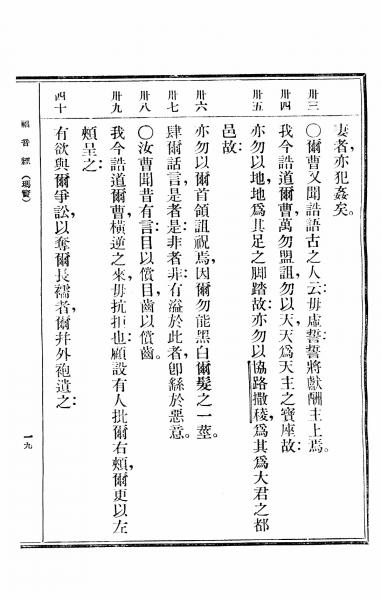 妻者,亦犯姦矣。
卅三 〇爾曹又聞誥語古之人云:毋虛誓誓將獻酬主上焉。
卅四 我今誥道爾曹,萬勿盟詛,勿以天天爲天主之寶座故:
卅五 亦勿以地地爲其足之脚踏故:亦勿以協路撒稜,爲其爲大君之都
邑故:
卅六 亦勿以爾首領詛祝焉,因爾勿能黑白爾髮之一莖。
卅七 肆爾話言,是者是:非者非:有溢於此者,卽繇於惡意。
卅八 〇汝曹聞昔有言:目以償目,齒以償齒。
卅九 我今誥道爾曹,橫逆之來,毋抗拒也:顧設有人批爾右頰,爾更以左
頰呈之:
四十 有欲與爾爭訟,以奪爾長襦者,爾幷外袍遺之:
福音經(瑪竇)
一九